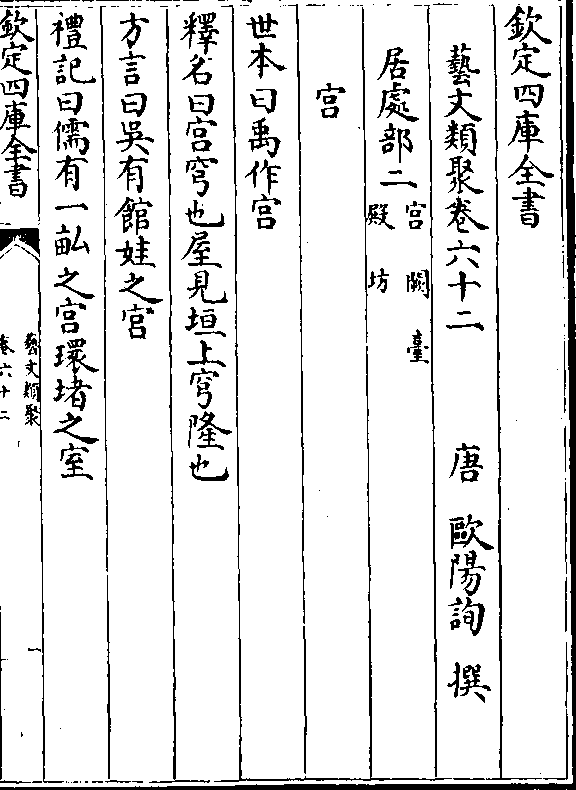 欽定四庫全書
藝文類聚卷六十二　唐　歐陽詢　撰
居處部二　宮　闕　臺　殿　坊
宮
世本曰禹作宮
釋名曰宮穹也屋見垣上穹隆也
方言曰吳有館娃之宮
禮記曰儒有一畝之宮環堵之室
欽定四庫全書
藝文類聚
卷六十二
一